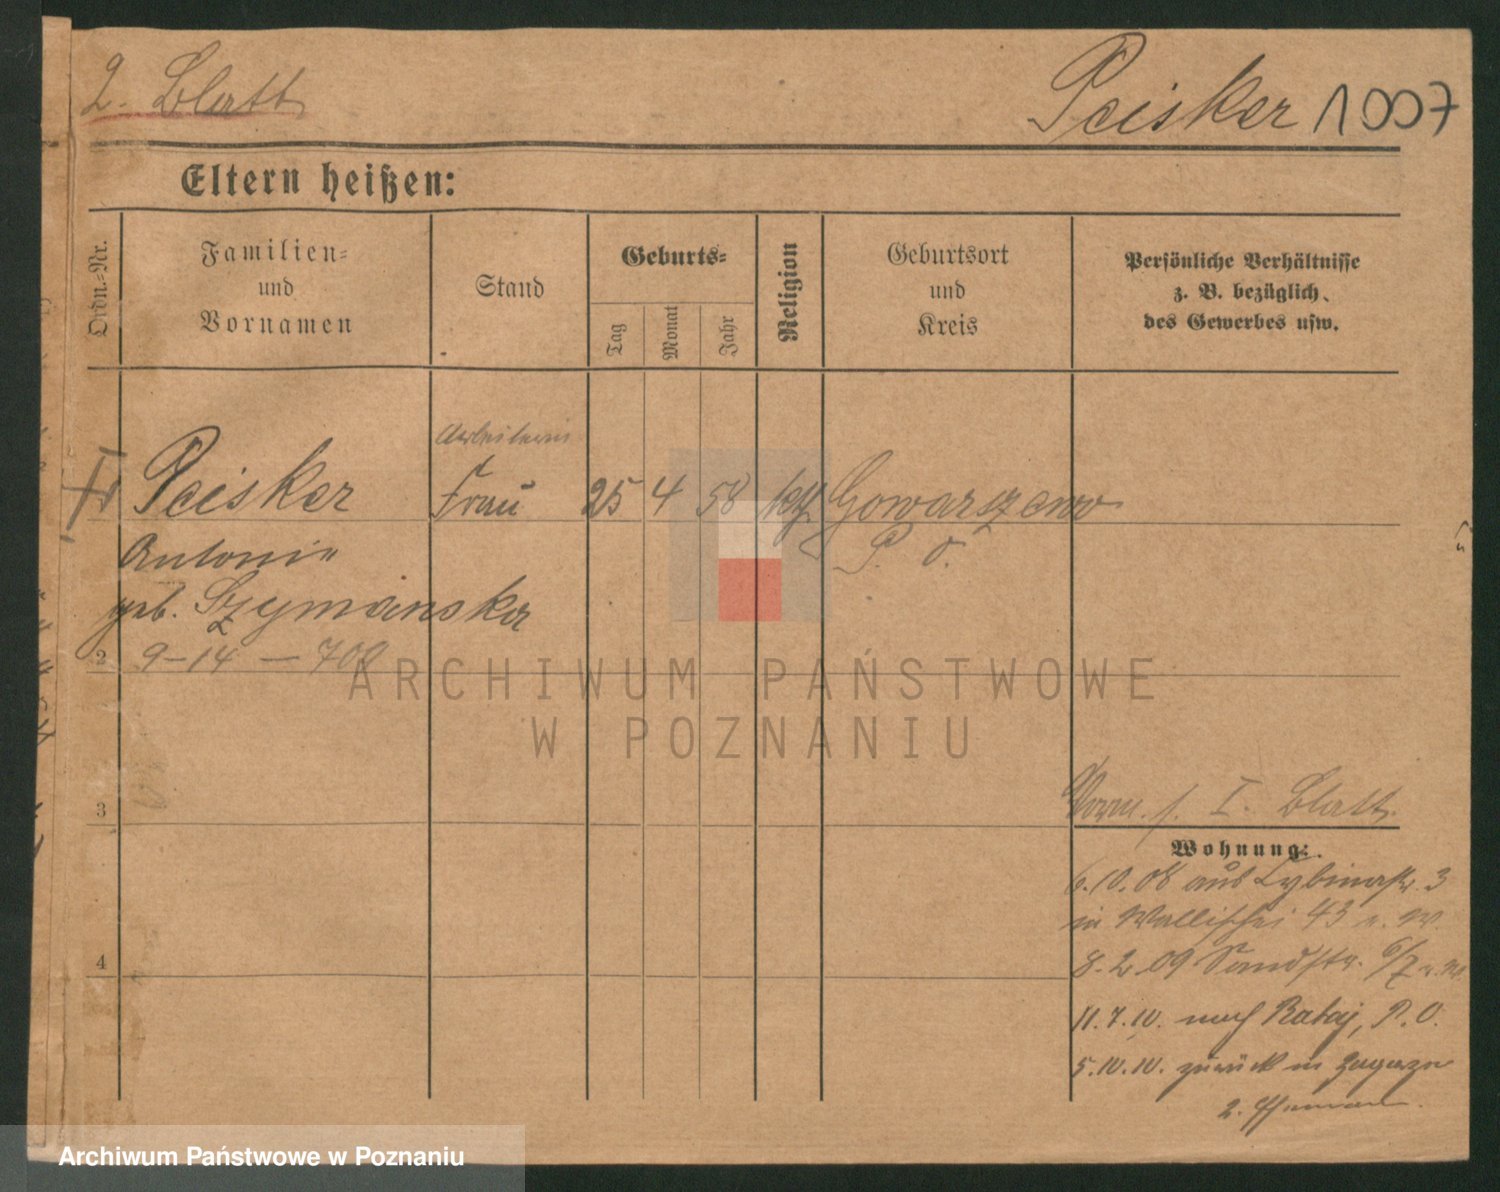 2. Blatt
Peisker 1007
Eltern heißen:
Ordn.-Nr.
Familien-
und
Vornamen
Stand
Geburts-
Tag
Monat
Jahr
Religion
Geburtsort
und
Kreis
Persönliche Verhältnisse
z. B. bezüglich
des Gewerbes usw.
Arbeiterin
Peisker Frau 25 4 58 kth Gowarzewo
Antonie P. O.
geb. Szymanska
2 9-14-708
ARCHIWUM PAŃSTWOWE
W POZNANIU
3
Vorm. s. I. Blatt
Wohnung:
6.10.08 aus Cybinastr. 3
in Wallischei 43
4
8.2.09 Sandstr. 6/7
11.7.10. nach Rataj, P. O.
5.10.10. zurück in
2.
Archiwum Państwowe w Poznaniu